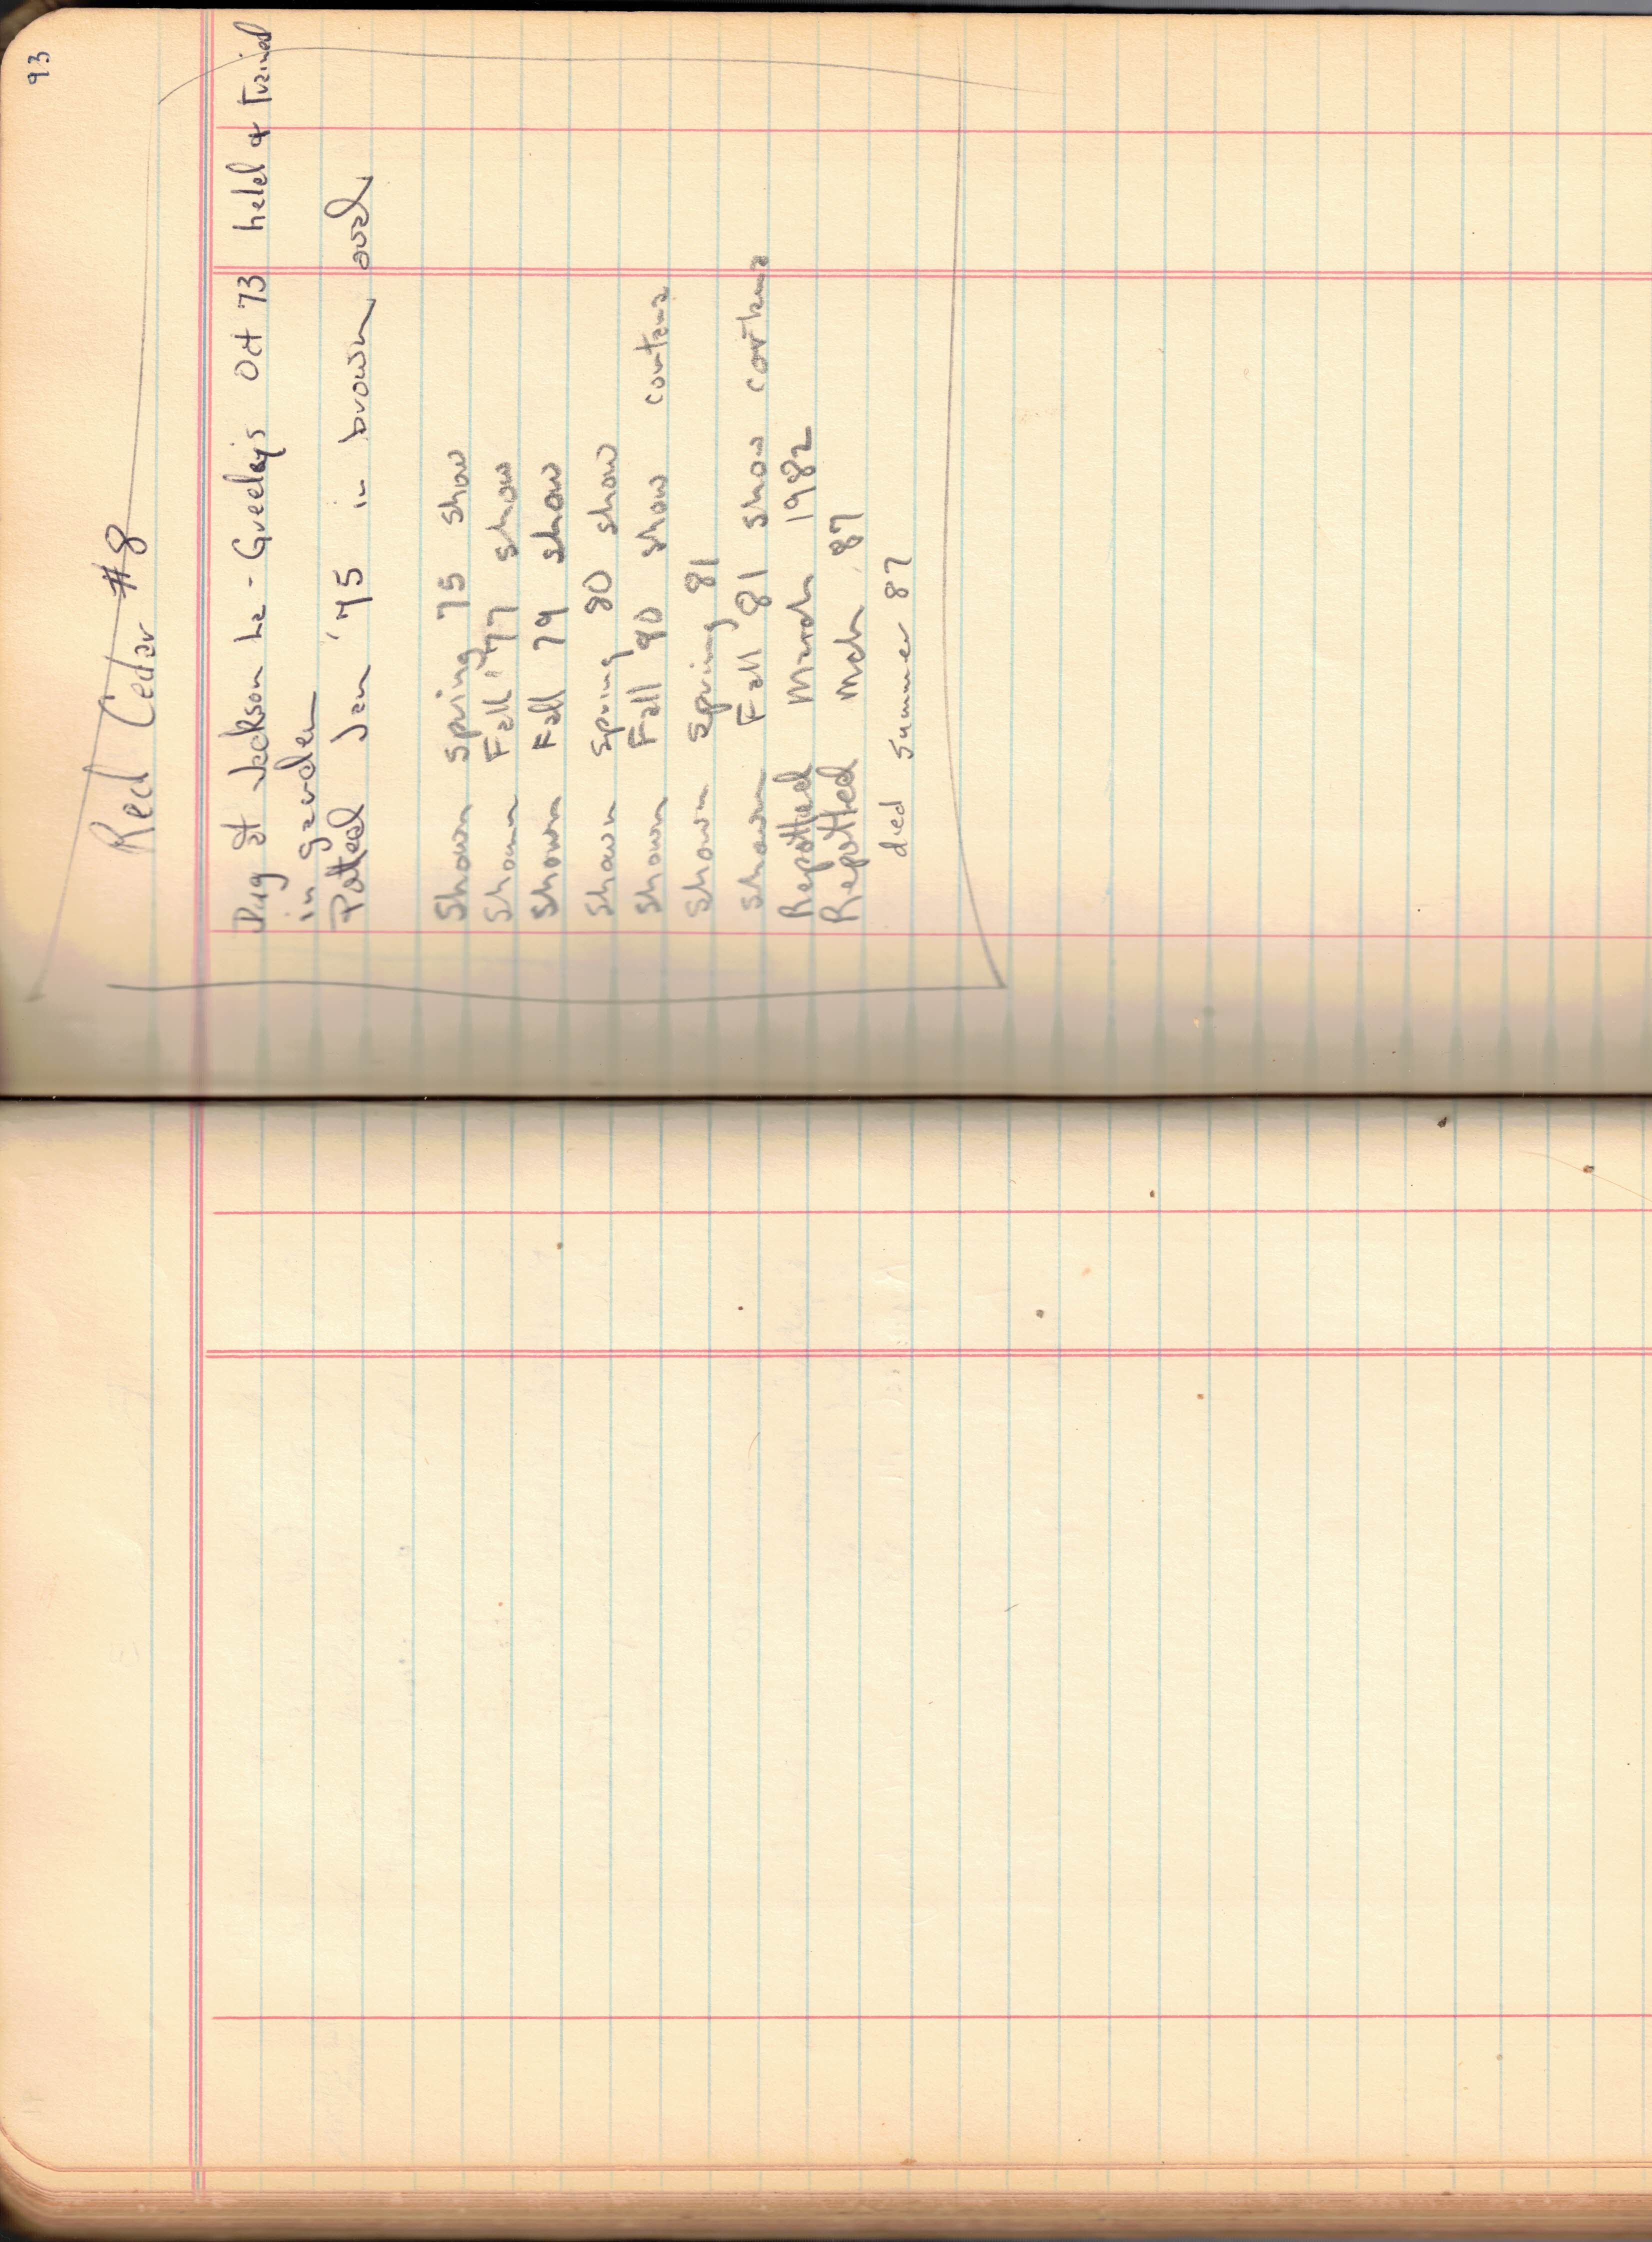 93
Red Cedar #8
Dug at Jackson La - Greeley's Oct 73 held & trained
in garden
Potted Jan '75 in brown oval
Shown spring 75 show
Shown Fall '77 show
Shown Fall 79 show
Shown spring 80 show
Shown Fall 80 show
Shown Spring 81
Shown Fall 81 show
Repotted March 1982
Repotted Mch 87
died summer 87